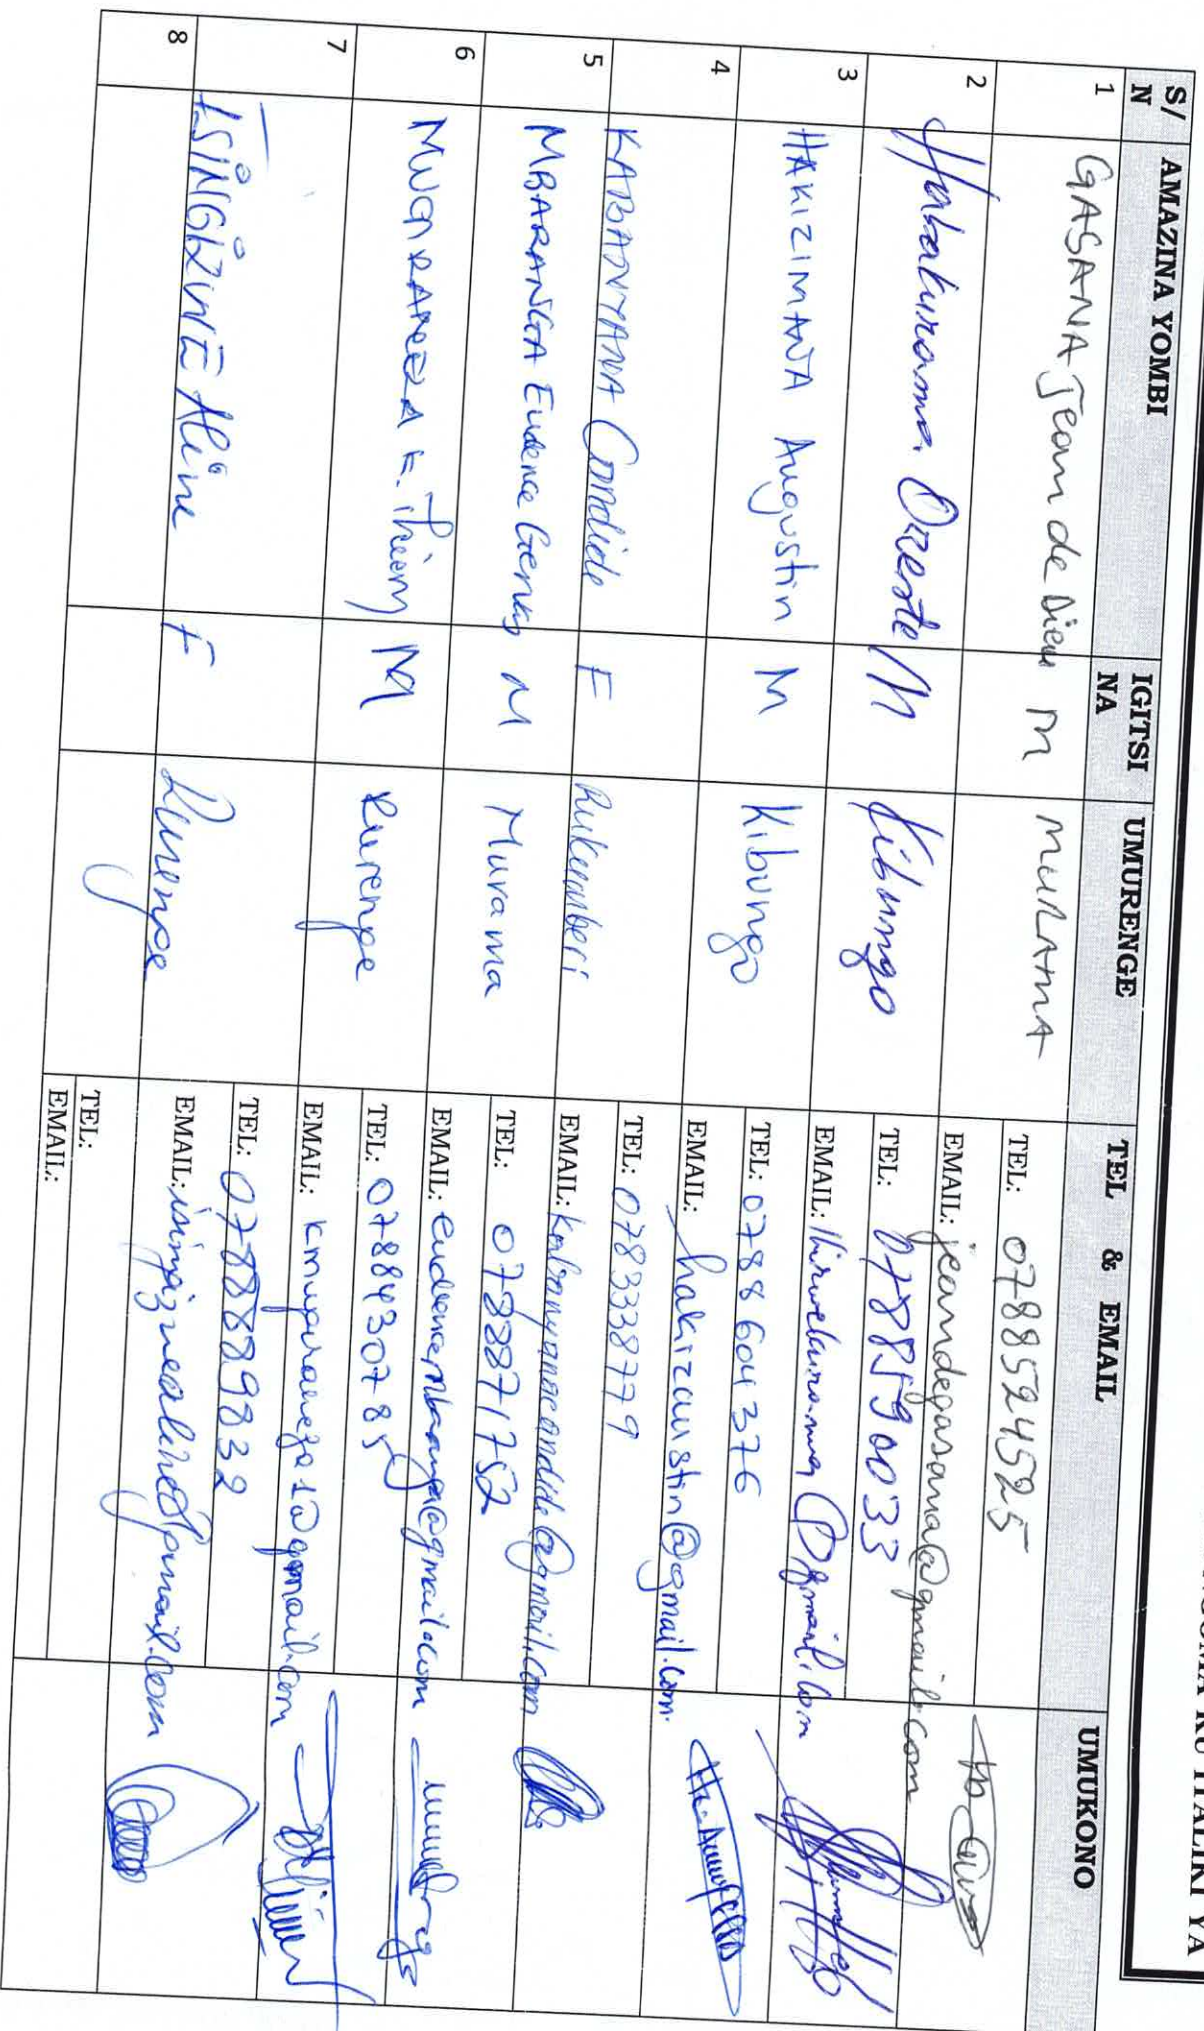 S/N AMAZINA YOMBI IGITSINA UMURENGE TEL & EMAIL UMUKONO
1 GASANA Jean de Dieu M MURAMA TEL: 0788524525
EMAIL: jeandegasana@gmail.com
2 Habakurama Oreste M Kibungo TEL: 0788590033
EMAIL: @gmail.com
3 HAKIZIMANA Augustin M Kibungo TEL: 0788604376
EMAIL: hakizaustin@gmail.com
4 KABANYANA Candide F Rukumberi TEL: 0783338779
EMAIL: kabanyanacandide@gmail.com
5 MBARANGA Eudence M Murama TEL: 0788871752
EMAIL: eudencembaranga@gmail.com
6 MUGIRANEZA K. Thierry M Rurenge TEL: 0788430785
EMAIL: kmugiraneza1@gmail.com
7 ISINGIZWE Aline F Rurenge TEL: 0788889832
EMAIL: isingizwealine@gmail.com
8 TEL:
EMAIL: